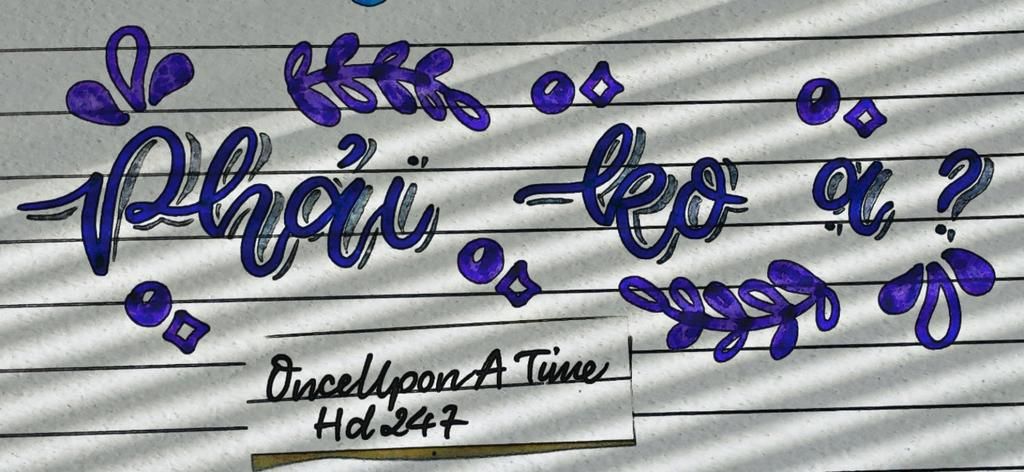 Phải ko ạ?
OnceUpon A Time
Hd 247